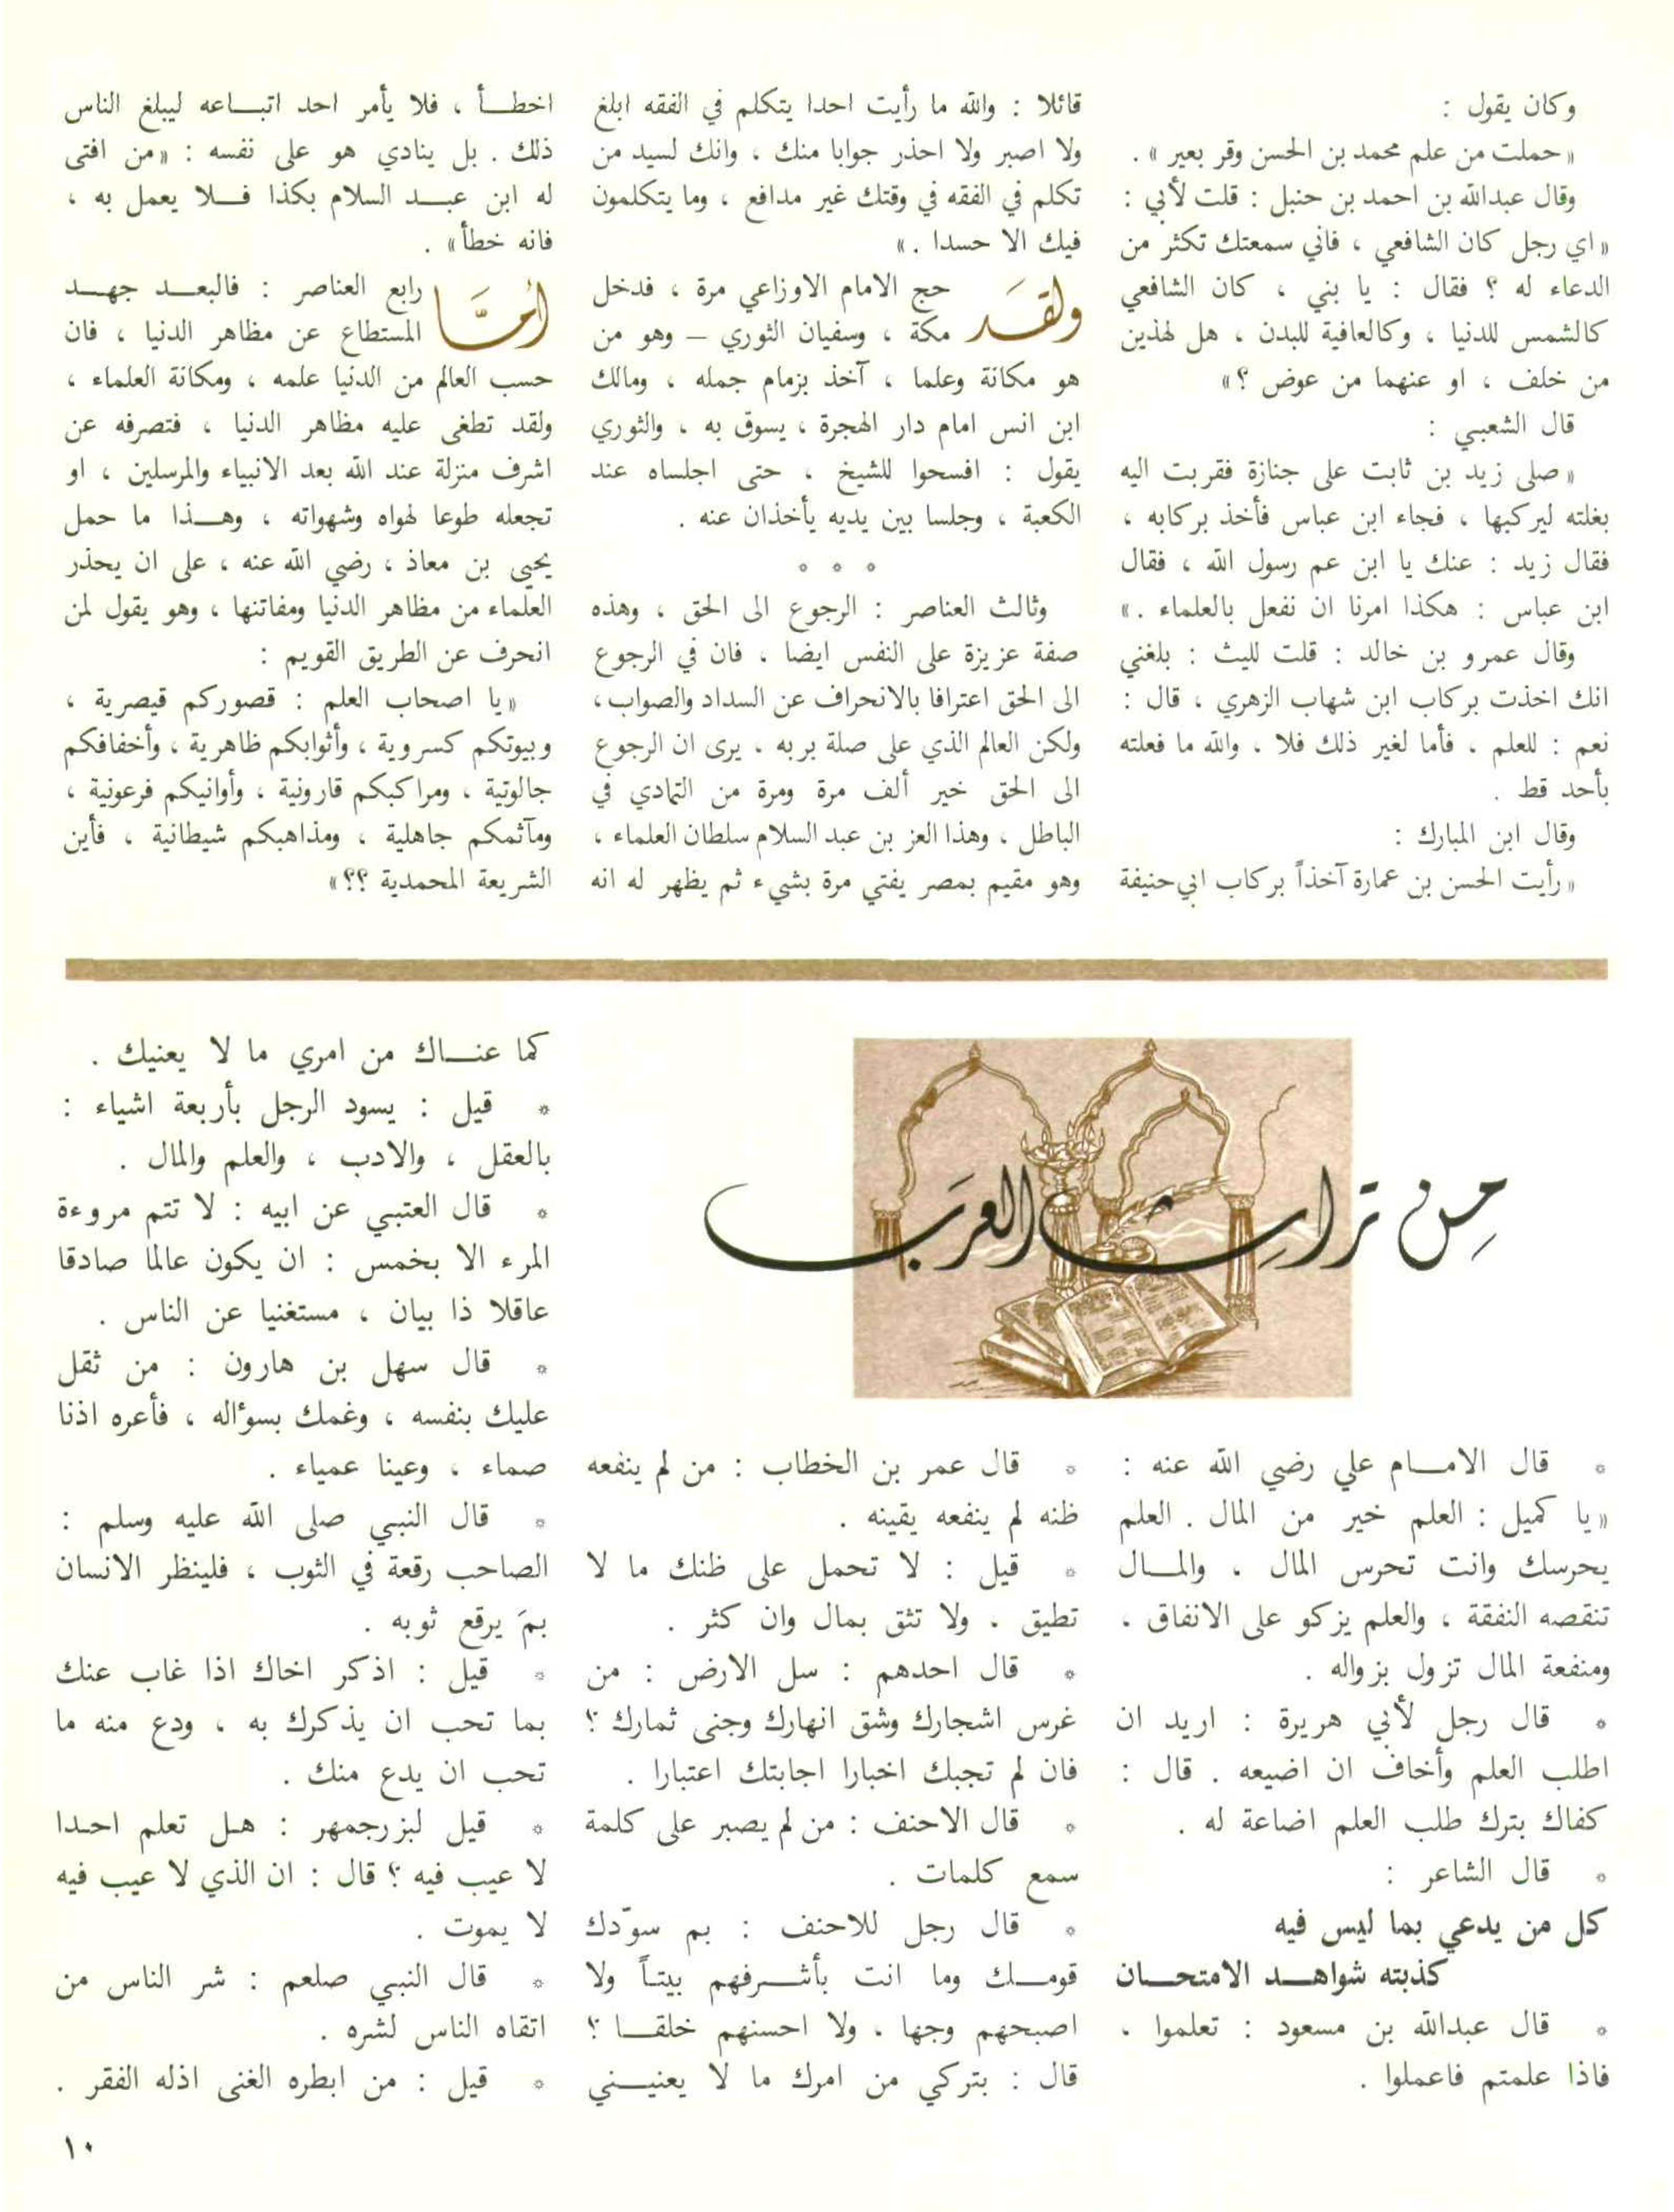 وكان يقول :
« حملت من علم محمد بن الحسن وقر بعير » .
وقال عبدالله بن احمد بن حنبل : قلت لأبي :
« اي رجل كان الشافعي ، فاني سمعتك تكثر من
الدعاء له ؟ فقال : يا بني ، كان الشافعي
كالشمس للدنيا ، وكالعافية للبدن ، هل لهذين
من خلف ، او عنهما من عوض ؟ »
قال الشعبي :
« صلى زيد بن ثابت على جنازة فقربت اليه
بغلته ليركبها ، فجاء ابن عباس فأخذ بركابه ،
فقال زيد : عنك يا ابن عم رسول الله ، فقال
ابن عباس : هكذا امرنا ان نفعل بالعلماء . »
وقال عمرو بن خالد : قلت لليث : بلغني
انك اخذت بركاب ابن شهاب الزهري ، قال :
نعم : للعلم ، فأما لغير ذلك فلا ، والله ما فعلته
بأحد قط .
وقال ابن المبارك :
« رأيت الحسن بن عمارة آخذاً بركاب ابي حنيفة
قائلا : والله ما رأيت احدا يتكلم في الفقه ابلغ
ولا اصبر ولا احذر جوابا منك ، وانك لسيد من
تكلم في الفقه في وقتك غير مدافع ، وما يتكلمون
فيك الا حسدا . »
ولقد حج الامام الاوزاعي مرة ، فدخل
مكة ، وسفيان الثوري – وهو من
هو مكانة وعلما ، آخذ بزمام جمله ، ومالك
ابن انس امام دار الهجرة ، يسوق به ، والثوري
يقول : افسحوا للشيخ ، حتى اجلساه عند
الكعبة ، وجلسا بين يديه يأخذان عنه .
° ° °
وثالث العناصر : الرجوع الى الحق ، وهذه
صفة عزيزة على النفس ايضا ، فان في الرجوع
الى الحق اعترافا بالانحراف عن السداد والصواب ،
ولكن العالم الذي على صلة بربه ، يرى ان الرجوع
الى الحق خير ألف مرة ومرة من التمادي في
الباطل ، وهذا العز بن عبد السلام سلطان العلماء ،
وهو مقيم بمصر يفتي مرة بشيء ثم يظهر له انه
اخطأ ، فلا يأمر احد اتباعه ليبلغ الناس
ذلك . بل ينادي هو على نفسه : « من افتى
له ابن عبد السلام بكذا فلا يعمل به ،
فانه خطأ » .
أمَّا رابع العناصر : فالبعد جهد
المستطاع عن مظاهر الدنيا ، فان
حسب العالم من الدنيا علمه ، ومكانة العلماء ،
ولقد تطغى عليه مظاهر الدنيا ، فتصرفه عن
اشرف منزلة عند الله بعد الانبياء والمرسلين ، او
تجعله طوعا لهواه وشهواته ، وهذا ما حمل
يحيى بن معاذ ، رضي الله عنه ، على ان يحذر
العلماء من مظاهر الدنيا ومفاتنها ، وهو يقول لمن
انحرف عن الطريق القويم :
« يا اصحاب العلم : قصوركم قيصرية ،
وبيوتكم كسروية ، وأثوابكم ظاهرية ، وأخفافكم
جالوتية ، ومراكبكم قارونية ، وأوانيكم فرعونية ،
ومآثمكم جاهلية ، ومذاهبكم شيطانية ، فأين
الشريعة المحمدية ؟؟ »
من تراث العرب
* قال الامام علي رضي الله عنه :
« يا كميل : العلم خير من المال . العلم
يحرسك وانت تحرس المال ، والمال
تنقصه النفقة ، والعلم يزكو على الانفاق ،
ومنفعة المال تزول بزواله .
* قال رجل لأبي هريرة : اريد ان
اطلب العلم وأخاف ان اضيعه . قال :
كفاك بترك طلب العلم اضاعة له .
* قال الشاعر :
كل من يدعي بما ليس فيه
كذبته شواهد الامتحان
* قال عبدالله بن مسعود : تعلموا ،
فاذا علمتم فاعملوا .
* قال عمر بن الخطاب : من لم ينفعه
ظنه لم ينفعه يقينه .
* قيل : لا تحمل على ظنك ما لا
تطيق ، ولا تثق بمال وان كثر .
* قال احدهم : سل الارض : من
غرس اشجارك وشق انهارك وجنى ثمارك ؟
فان لم تجبك اخبارا اجابتك اعتبارا .
* قال الاحنف : من لم يصبر على كلمة
سمع كلمات .
* قال رجل للاحنف : بم سوّدك
قومك وما انت بأشرفهم بيتاً ولا
اصبحهم وجها ، ولا احسنهم خلقا ؟
قال : بتركي من امرك ما لا يعنيني
كما عناك من امري ما لا يعنيك .
* قيل : يسود الرجل بأربعة اشياء :
بالعقل ، والادب ، والعلم والمال .
* قال العتبي عن ابيه : لا تتم مروءة
المرء الا بخمس : ان يكون عالما صادقا
عاقلا ذا بيان ، مستغنيا عن الناس .
* قال سهل بن هارون : من ثقل
عليك بنفسه ، وغمك بسؤاله ، فأعره اذنا
صماء ، وعينا عمياء .
* قال النبي صلى الله عليه وسلم :
الصاحب رقعة في الثوب ، فلينظر الانسان
بمَ يرقع ثوبه .
* قيل : اذكر اخاك اذا غاب عنك
بما تحب ان يذكرك به ، ودع منه ما
تحب ان يدع منك .
* قيل لبزرجمهر : هل تعلم احدا
لا عيب فيه ؟ قال : ان الذي لا عيب فيه
لا يموت .
* قال النبي صلعم : شر الناس من
اتقاه الناس لشره .
* قيل : من ابطره الغنى اذله الفقر .
١٠